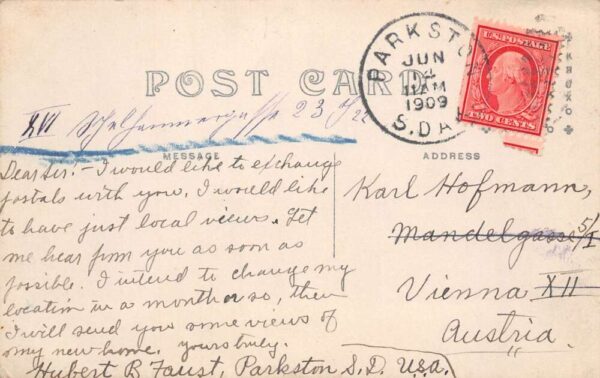 PARKSTON
JUN
14
11 AM
1909
S. DAK.
U.S. POSTAGE
TWO CENTS
POST CARD
XVI 23
MESSAGE
ADDRESS
Dear Sir:- I would like to exchange
postals with you. I would like
to have just local views. Let
me hear from you as soon as
possible. I intend to change my
location in a month or so, then
I will send you some views of
my new home. yours truly.
Hubert B Faust, Parkston S.D. U.S.A.
Karl Hofmann,
Mandelgasse 5/I
Vienna XII
Austria.